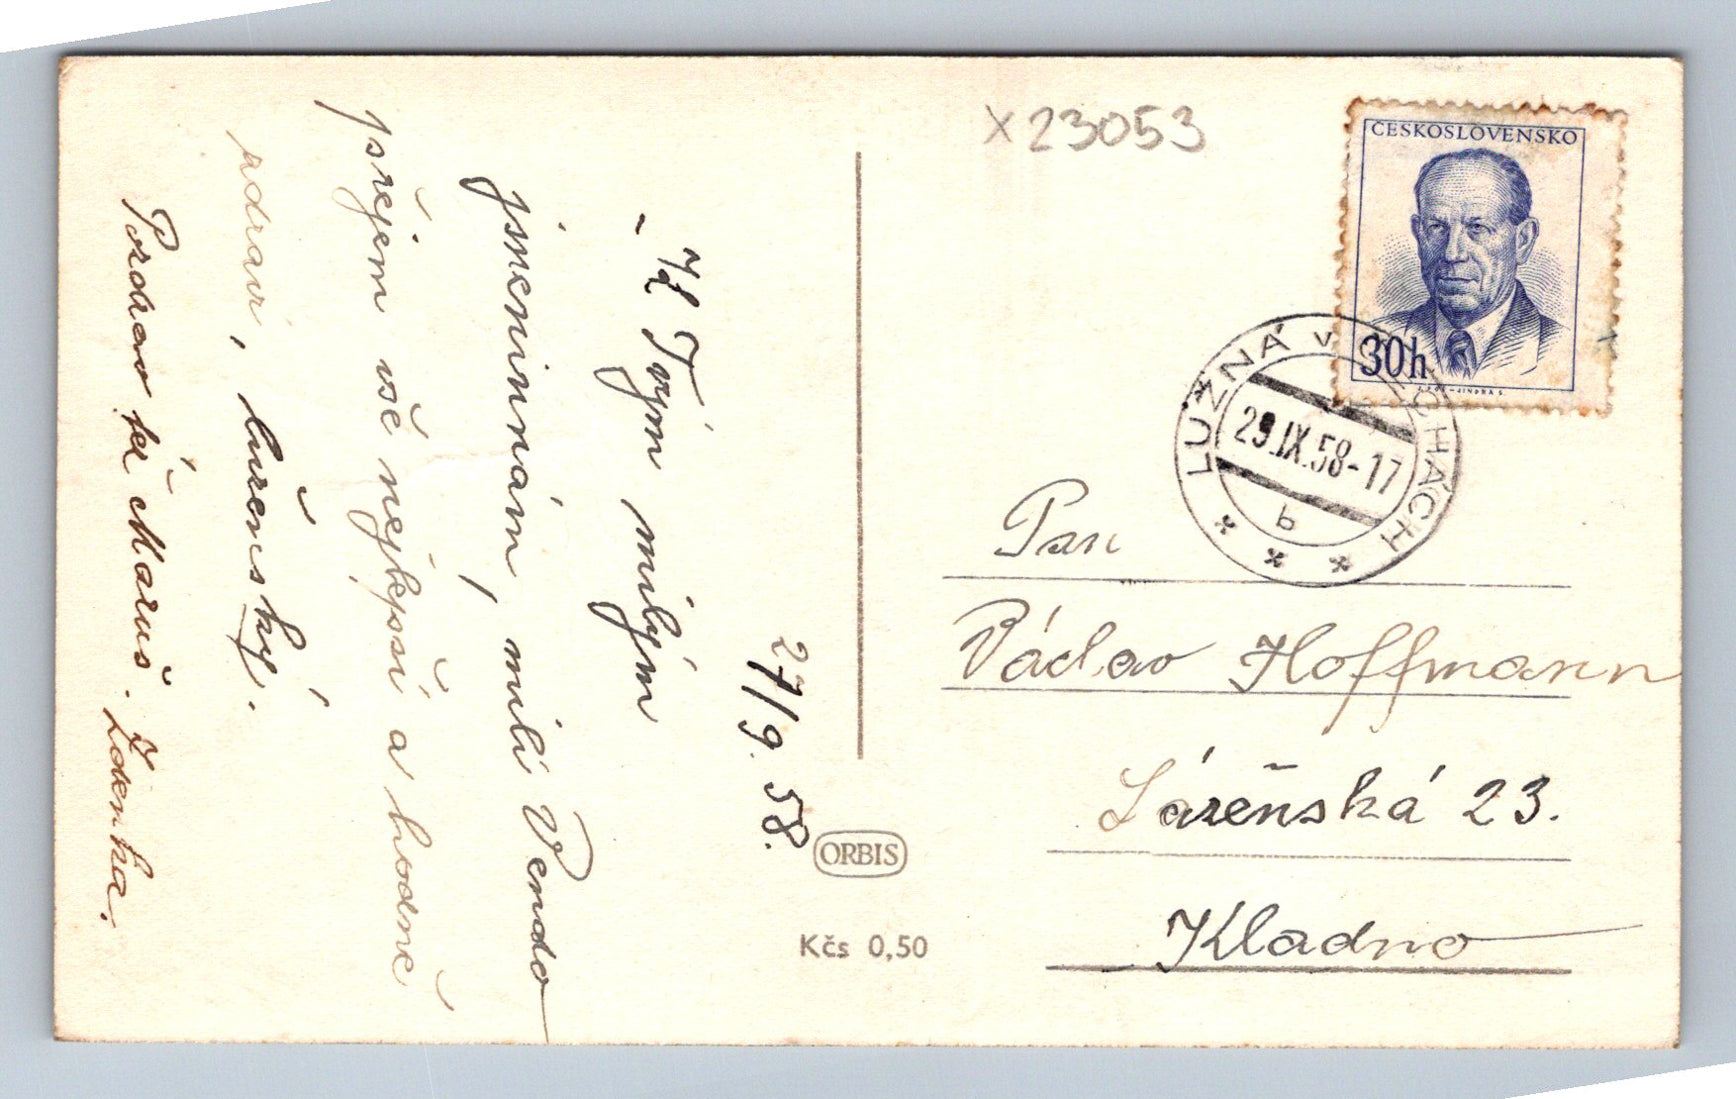 X 23053
ČESKOSLOVENSKO
30h
LUŽNÁ v
29.IX.58-17
b
27/9. 58.
K Tvým milým
jmeninám, milí Vendo
přejem vše nejlepší a hodně
zdraví, luženský.
Pozdrav též Maruš. Zdenka.
ORBIS
Kčs 0,50
Pan
Václav Hoffmann
Lázeňská 23.
Kladno